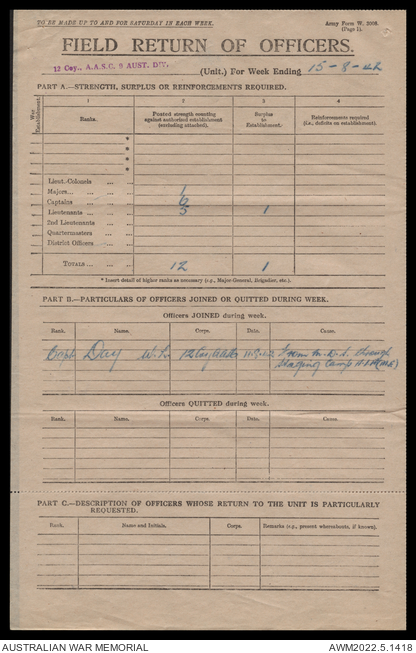 TO BE MADE UP TO AND FOR SATURDAY IN EACH WEEK.
Army Form W. 3008.
(Page 1).
FIELD RETURN OF OFFICERS.
12 Coy., A.A.S.C. 9 AUST. DIV.
(Unit.) For Week Ending 15-8-42
PART A.—STRENGTH, SURPLUS OR REINFORCEMENTS REQUIRED.
War Establishment.
1 2 3 4
Ranks. Posted strength counting against authorized establishment (excluding attached). Surplus to Establishment. Reinforcements required (i.e., deficits on establishment).
*
*
*
*
Lieut.-Colonels ... ...
Majors... ... ... 1
Captains ... ... ... 6
Lieutenants ... ... 5 1
2nd Lieutenants ...
Quartermasters ...
District Officers ...
TOTALS ... ... 12 1
* Insert detail of higher ranks as necessary (e.g., Major-General, Brigadier, etc.).
PART B.—PARTICULARS OF OFFICERS JOINED OR QUITTED DURING WEEK.
Officers JOINED during week.
Rank. Name. Corps. Date. Cause.
Capt Day 12 Coy AASC From through
Staging Camp
Officers QUITTED during week.
Rank. Name. Corps. Date. Cause.
PART C.—DESCRIPTION OF OFFICERS WHOSE RETURN TO THE UNIT IS PARTICULARLY
REQUESTED.
Rank. Name and Initials. Corps. Remarks (e.g., present whereabouts, if known).
AUSTRALIAN WAR MEMORIAL AWM2022.5.1418